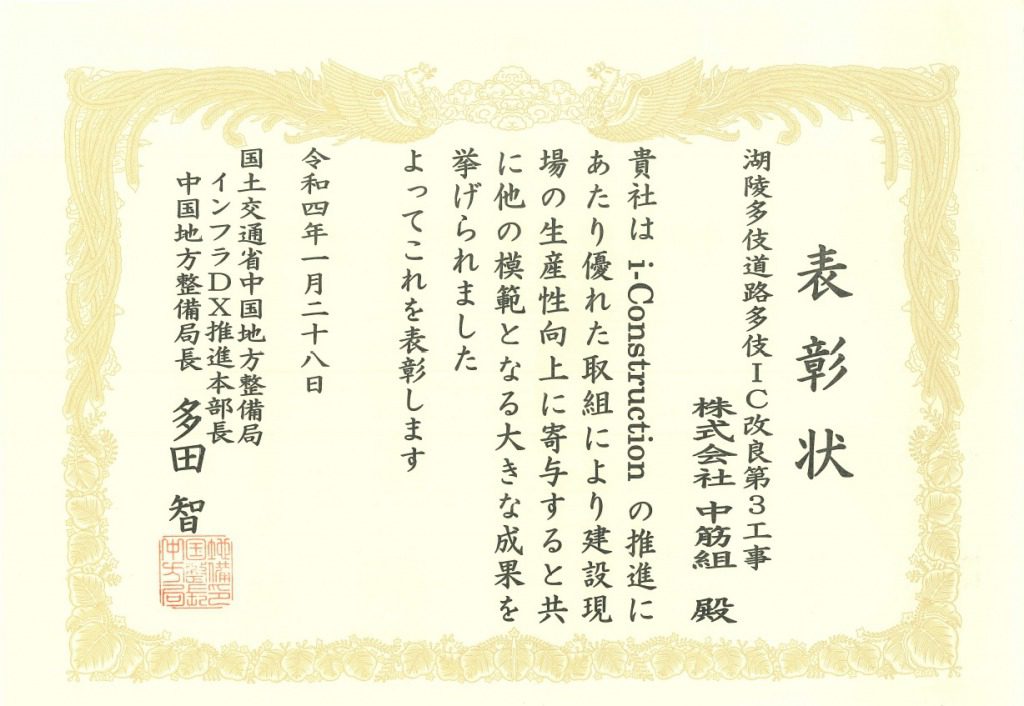 表彰状
湖陵多伎道路多伎IC改良第3工事
株式会社 中筋組 殿
貴社は i-Construction の推進に
あたり優れた取組により建設現
場の生産性向上に寄与すると共
に他の模範となる大きな成果を
挙げられました
よってこれを表彰します
令和四年一月二十八日
国土交通省中国地方整備局
インフラDX推進本部長
中国地方整備局長 多田 智